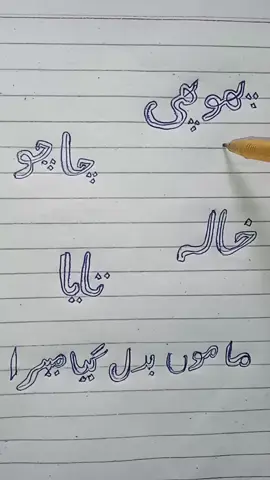 پھوپھی
چاچو
خالہ
تایا
ماموں بدل گیا میرا